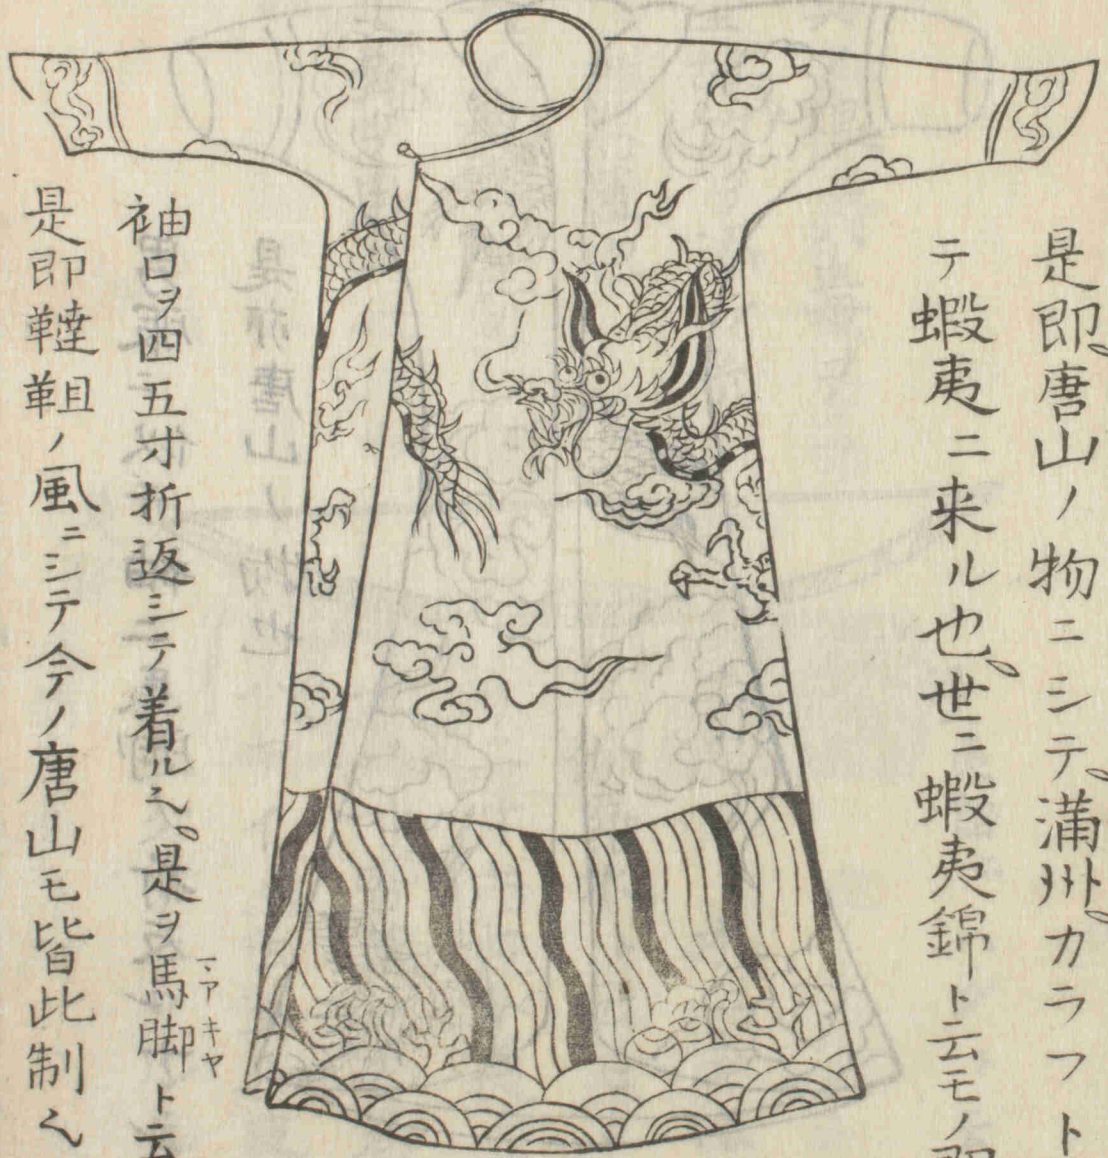 是即唐山ノ物ニシテ。満州。カラフト
テ蝦夷ニ来ル也。世ニ蝦夷錦ト云モノ即
袖口ヲ四五寸折返シテ着ルヘ。是ヲ馬脚ト云
マアキヤ
是即韃靼ノ風ニシテ今ノ唐山モ皆此制ヘ